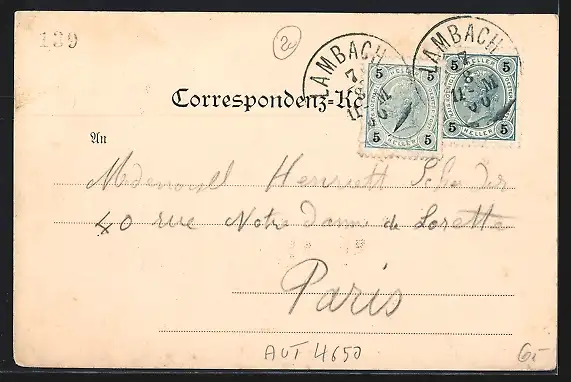 139
2
LAMBACH
7
8
11-M
00
LAMBACH
7
8
11-M
00
5 HELLER 5
5 HELLER 5
5 HELLER 5
5 HELLER 5
Correspondenz-
An
Henriett
40 rue Notre Dame de Lorette
Paris
AUT 4650
6.-